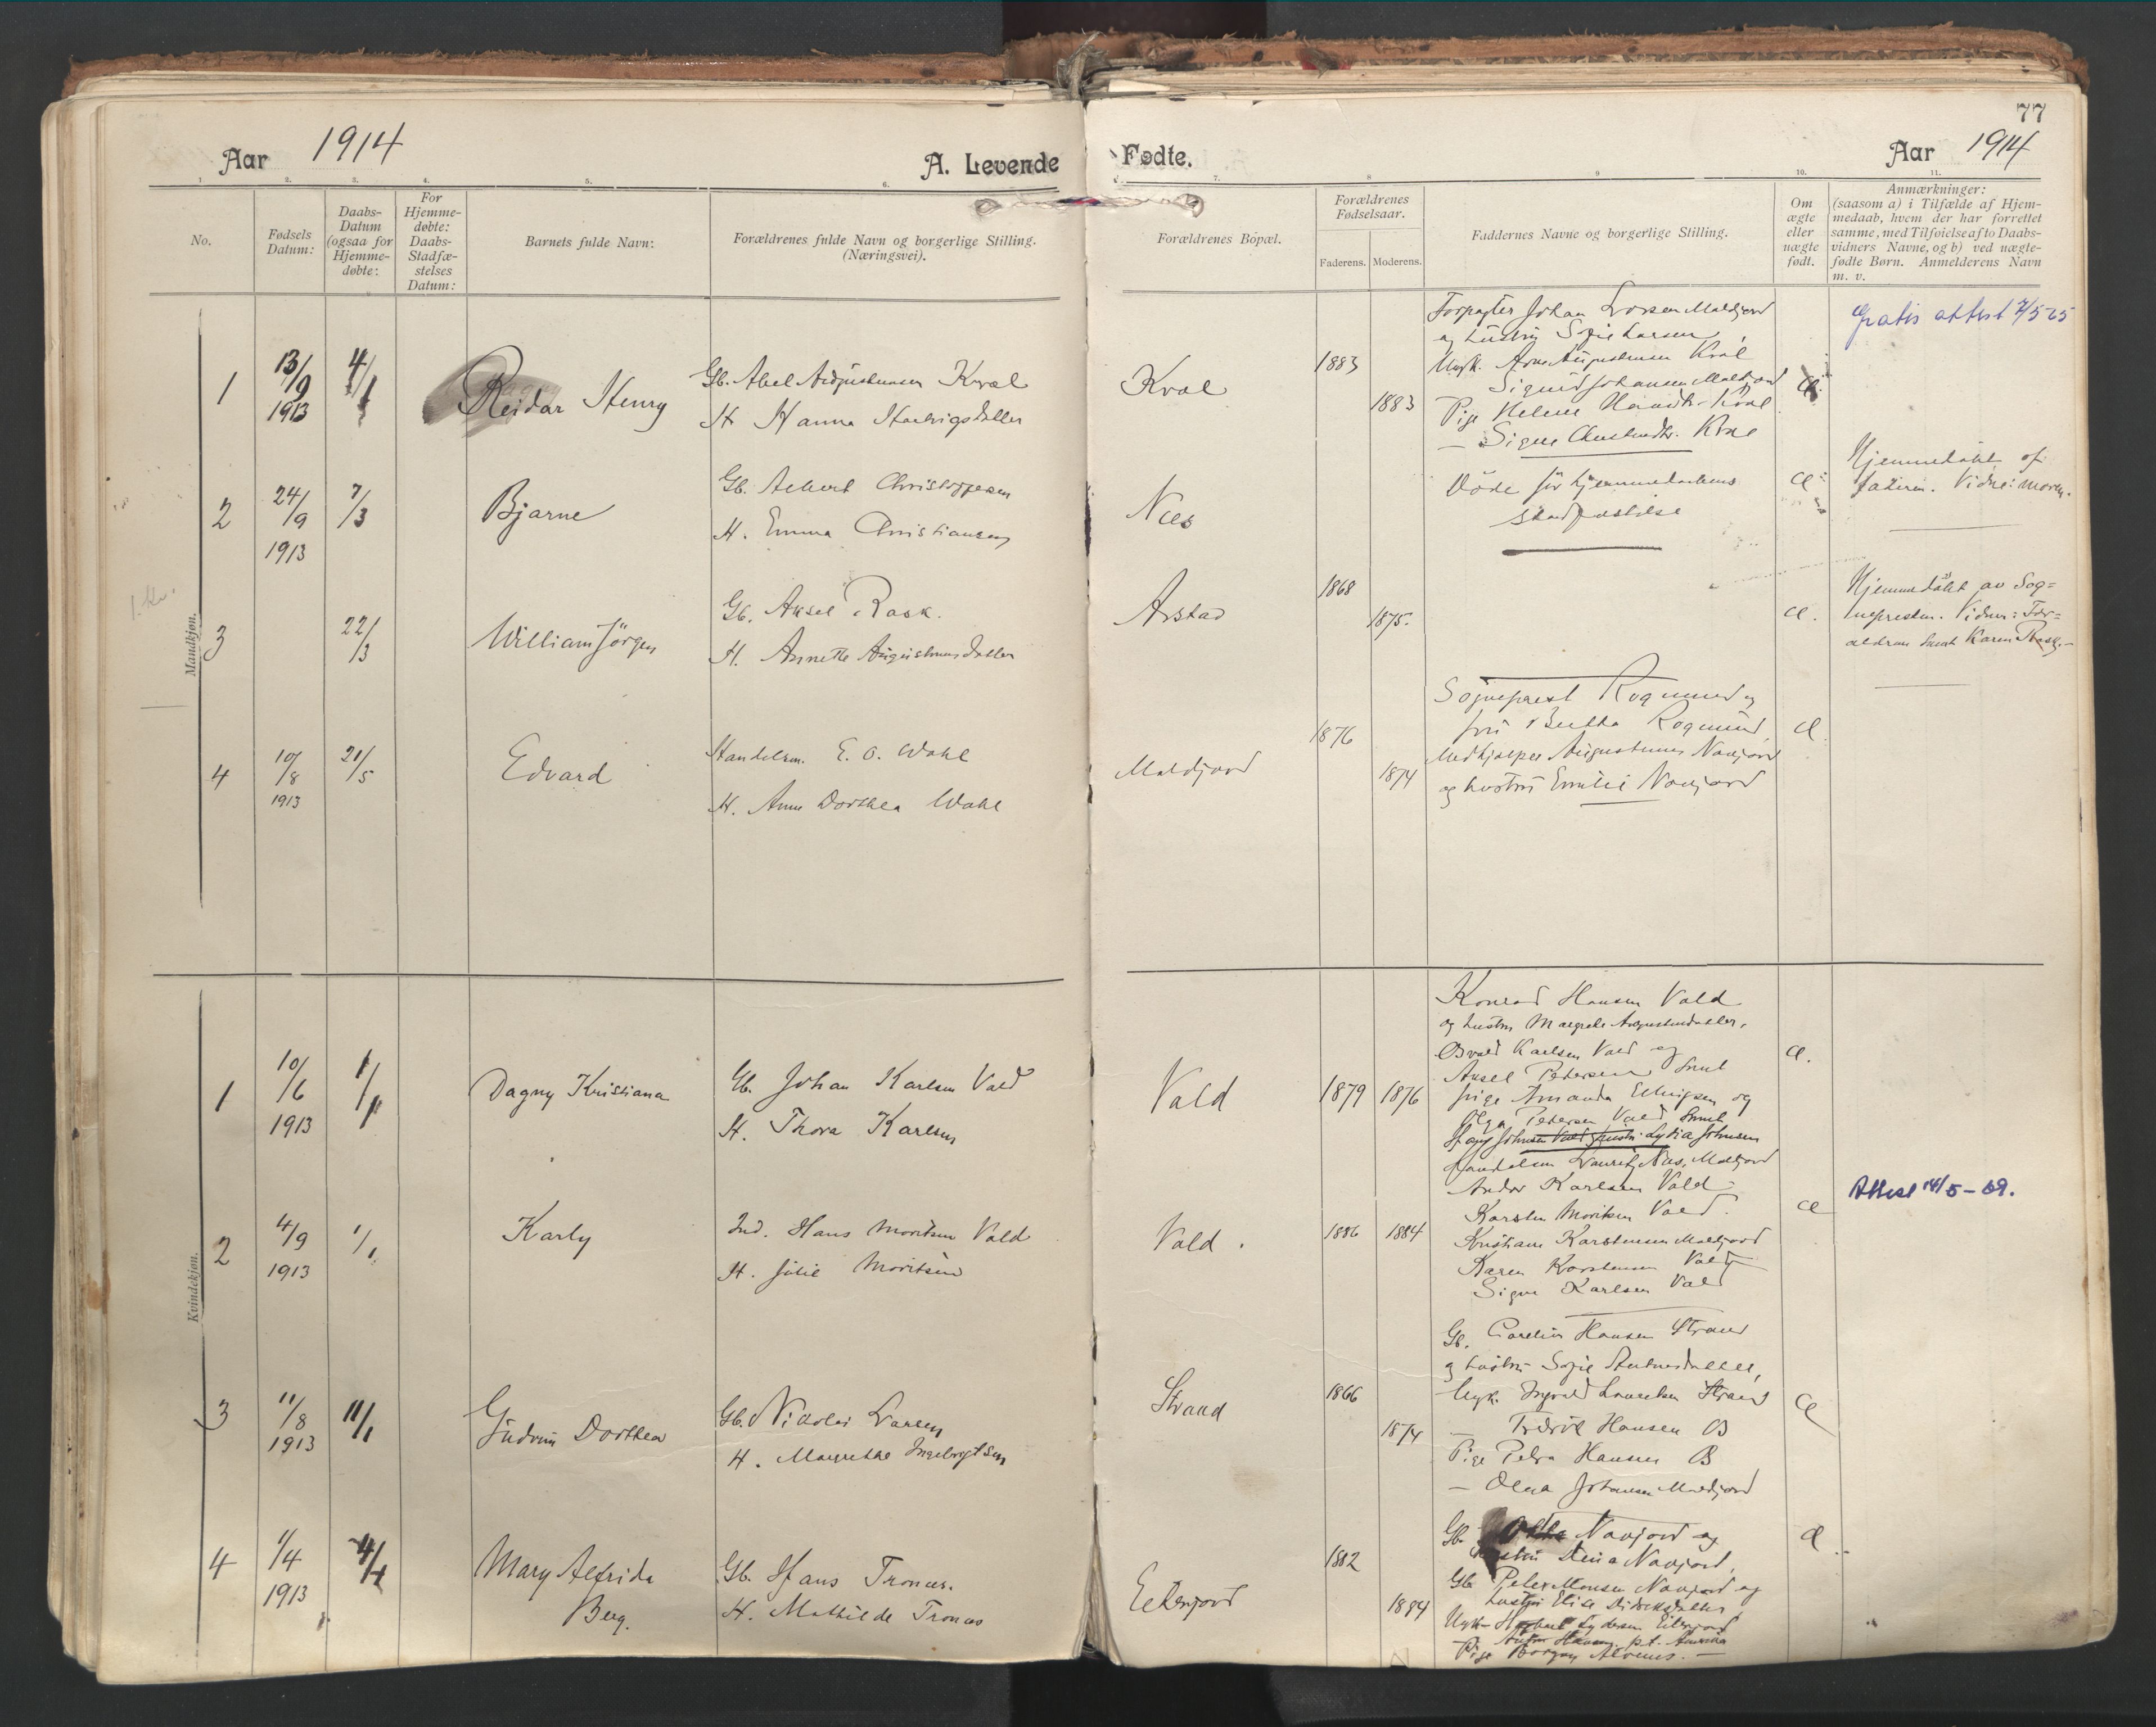 77
Aar 1914 A. Levende Fødte. Aar 1914
1. 2. 3. 4. 5. 6. 7. 8 9 10. 11.
No.
Fødsels
Datum:
Daabs-
Datum
(ogsaa for
Hjemme-
døbte:
For
Hjemme-
døbte:
Daabs-
Stadfæ-
stelses
Datum:
Barnets fulde Navn:
Forældrenes fulde Navn og borgerlige Stilling.
(Næringsvei).
Forældrenes Bopæl.
Forældrenes
Fødselsaar.
Faderens. Moderens.
Faddernes Navne og borgerlige Stilling.
Om
ægte
eller
uægte
født.
Anmærkninger:
(saasom a) i Tilfælde af Hjem-
medaab, hvem der har forrettet
samme, med Tilføielse af to Daabs-
vidners Navne, og b) ved uægte-
fødte Børn. Anmelderens Navn
m. v.
Mandkjøn.
1
13/9
1913
4/1
Reidar Henry
Gb. Abel Augustinsen Kval
H Hanna Hartvigsdatter
Kval
1883
1883
Forpagter Johan Larsen Maldjord
og hustru Sofie Larsen
Ungk. Arne Augustinsen Kval
Sigurd Johansen Maldjord
Pige Helene Kval
— Signe Kval
Gratis attest 7/5-65
2
24/9
1913
7/3
Bjarne
Gb. Albert Christoffersen
H. Emma Christiansen
Næs
Døde før hjemmedaabens
stadfæstelse
Hjemmedøbt af
faderen. Vidne: moren.
3
22/3
William Jörgen
Gb. Aksel Rask.
H. Annette Augustinusdatter
Arstad
1868
1875.
Hjemmedøbt av Sog=
nepresten. Vidner: For=
ældrene samt Karen Rask.
4
10/8
1913
21/5
Edvard
Handelsm. E. O. Wahl
H. Anna Dorthea Wahl
Maldjord
1876
1874
Sogneprest Rogmund og
frü Bertha Rogmund,
Medhjælper Augustinus Navjord
og hustru Emilie Navjord
Kvindekjøn.
1
10/6
1913
1/1
Dagny Kristiana
Gb. Johan Karlsen Vald
H. Thora Karlsen
Vald
1879 1876
Konrad Hansen Vald
og hustru Margrete Augustinusdatter,
Osvald Karlsen Vald og
Aksel Petersen Samt
pige Amanda Ellingsen og
Olga Petersen Vald Samt
2
4/9
1913
1/1
Karly
Ind. Hans Moritsen Vald
H. Julie Moritsen
Vald.
1886 1884
Johnsen Lydia Johnsen
Handelsm Lauritz Næs, Maldjord
Andor Karlsen Vald
Karsten Moritsen Vald.
Kristiane Karstensen Maldjord
Karen Karstensen Vald
Signe Karlsen Vald
Attest 14/5-69.
3
11/8
1913
11/1
Gudrun Dorthea
Gb. Nikolai Larsen
H. Margrethe Ingebrigtsen
Strand
1866
1874
Gb. Cornelius Hansen Strand
og hustru Sofie
Ungk. Ingvald Lauritsen Strand
— Fredrik Hansen B
Pige Petra Hansen B
— Olga Johansen Maldjord
4
1/4
1913
4/1
Mary Alfrida
Berg.
Gb. Hans Tronæs.
H. Mathilde Tronæs
Eiterjord
1882
1884
Gb. Navjord og
hustru Dina Navjord,
Gb Peter Monsen Navjord og
hustru Elise Didriksdatter,
Ungk Lydersen Eiterjord
Anton Hansen p.t. Amerika
Pige Borgny Alvenes. —